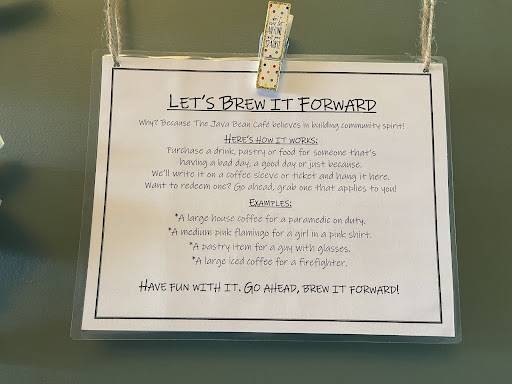 LET'S BREW IT FORWARD
Why? Because The Java Bean Café believes in building community spirit!
HERE'S HOW IT WORKS:
Purchase a drink, pastry or food for someone that's
having a bad day, a good day or just because.
We'll write it on a coffee sleeve or ticket and hang it here.
Want to redeem one? Go ahead, grab one that applies to you!
EXAMPLES:
*A large house coffee for a paramedic on duty.
*A medium pink flamingo for a girl in a pink shirt.
*A pastry item for a guy with glasses.
*A large iced coffee for a firefighter.
HAVE FUN WITH IT. GO AHEAD, BREW IT FORWARD!